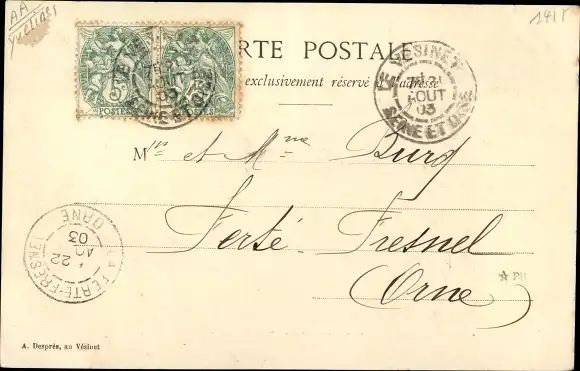 AA
Yvelines
1417
CARTE POSTALE
exclusivement réservé à l'adresse
5c
POSTES
LE VESINET
7E 21
AOUT
03
SEINE ET OISE
LE VESINET
7E 21
AOUT
03
SEINE ET OISE
Mr et Mme Burq
Ferté-Fresnel
(Orne)
LA FERTE-FRESNEL
22
AO
03
ORNE
A. Després, au Vésinet